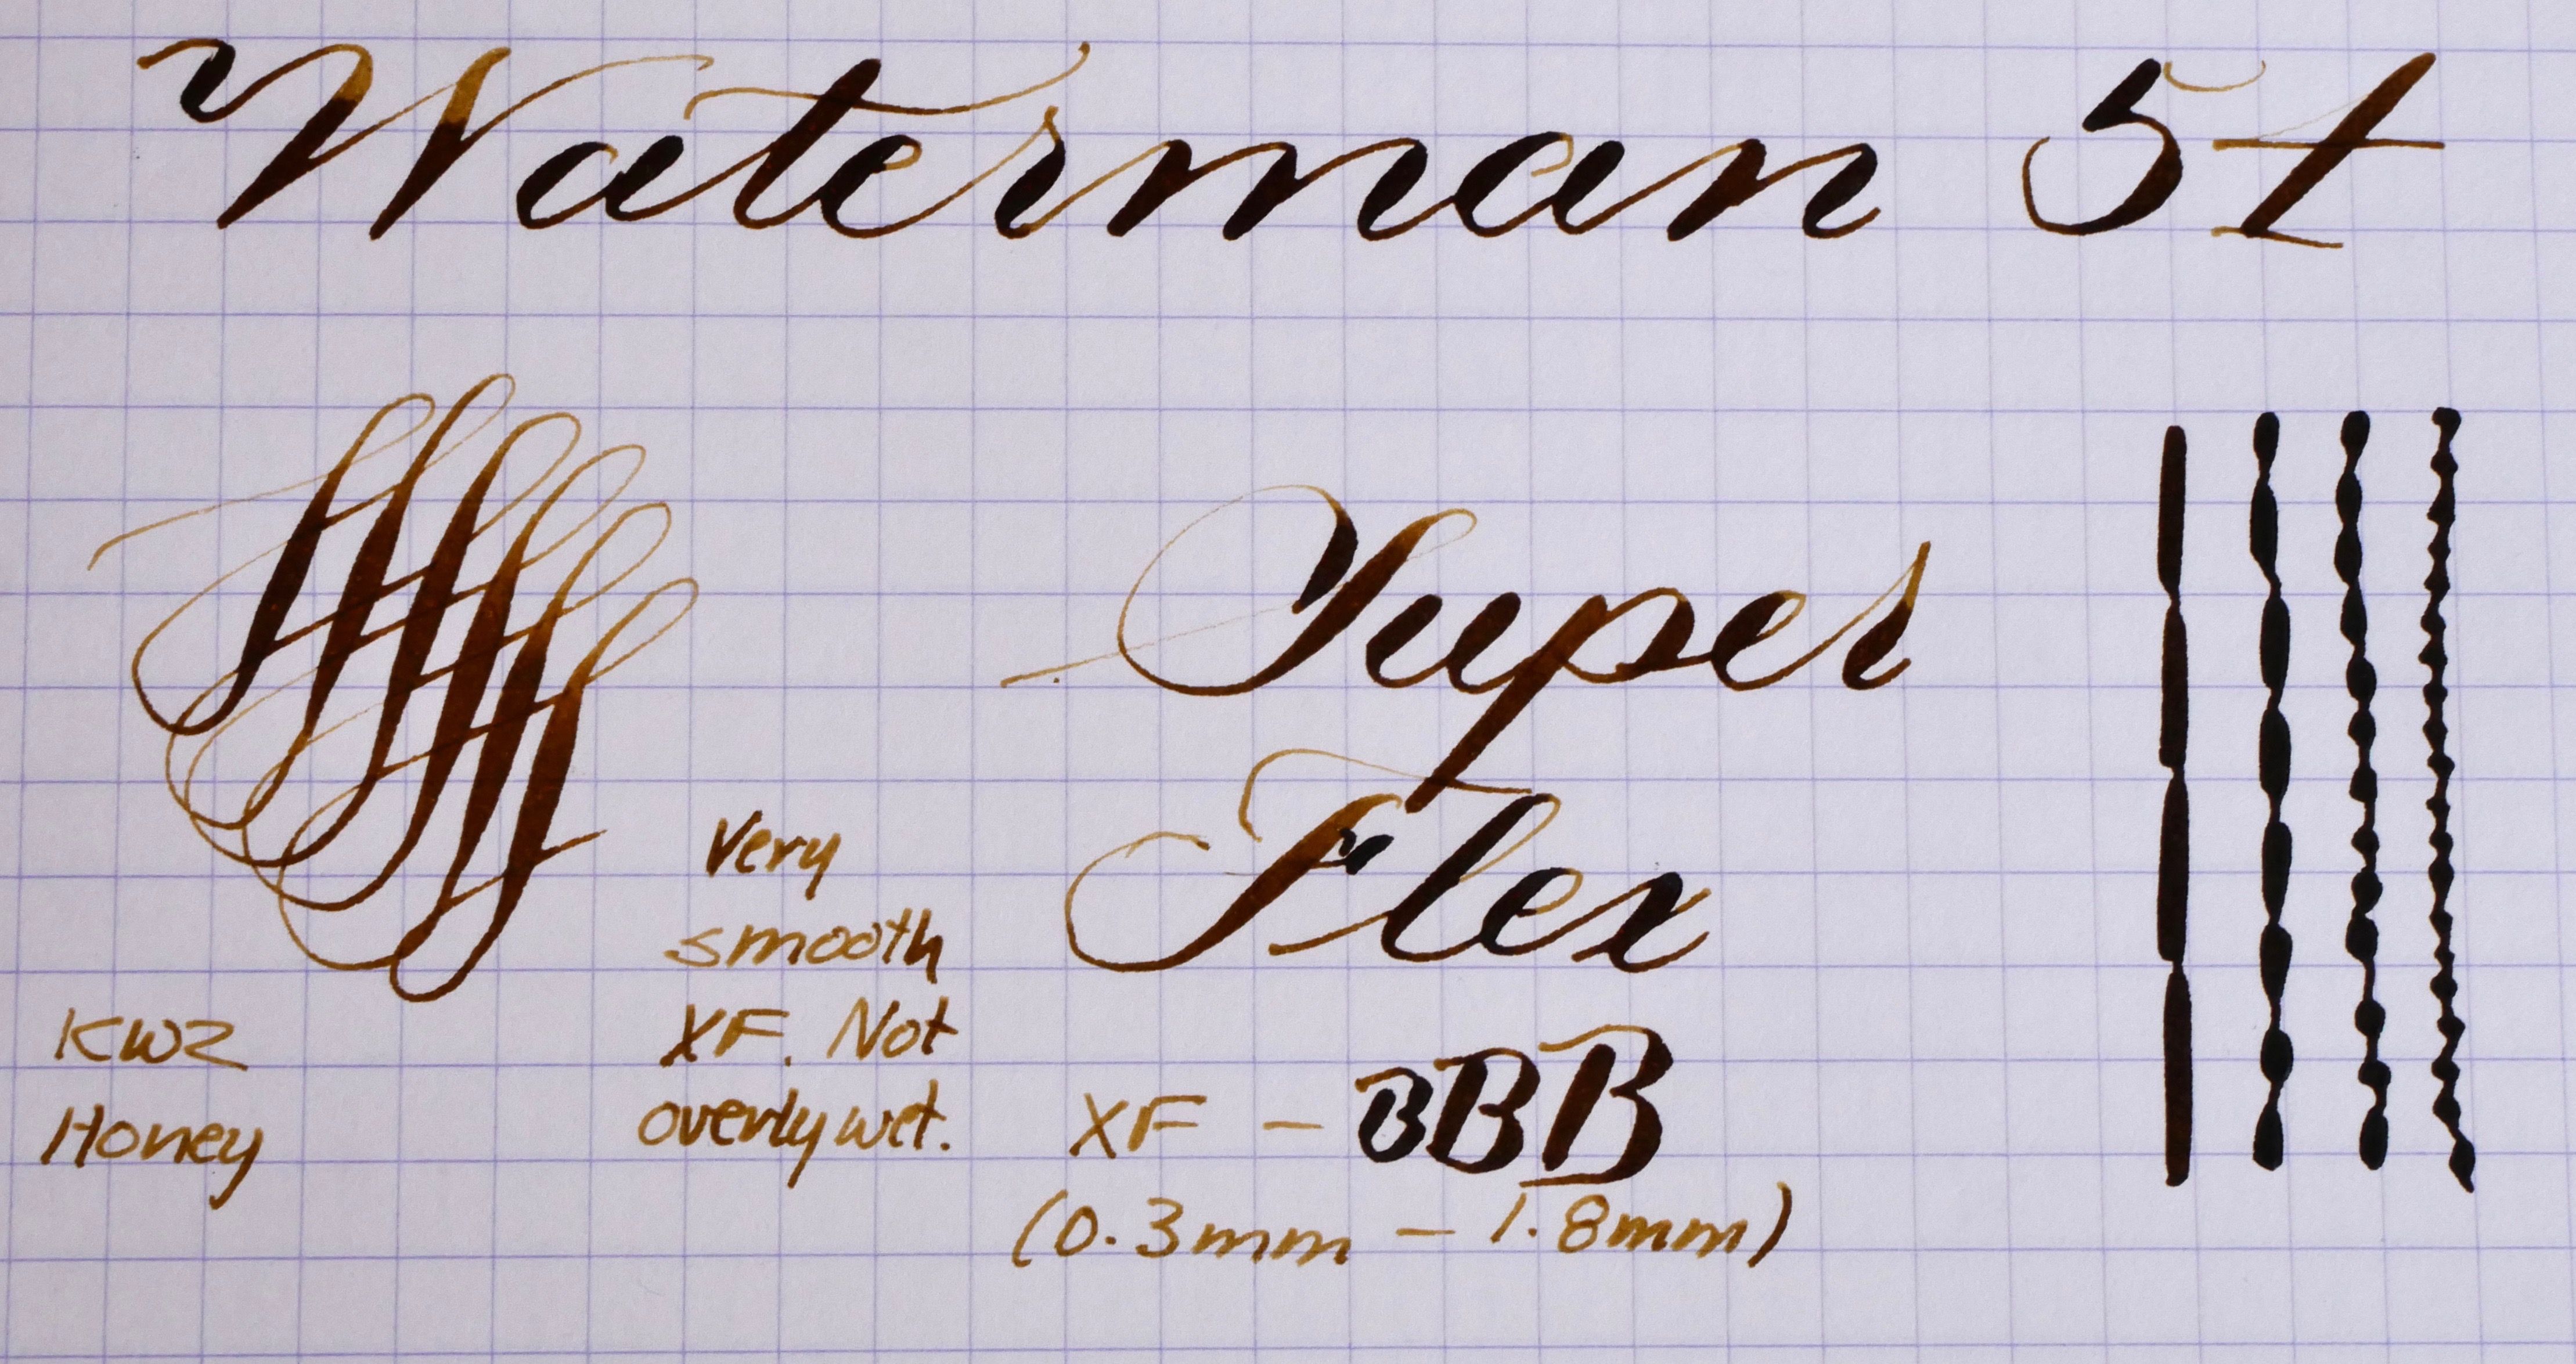 Waterman 5t
Super
Flex
Very
smooth
XF. Not
overly wet.
KWZ
Honey
XF – BBB
(0.3mm – 1.8mm)